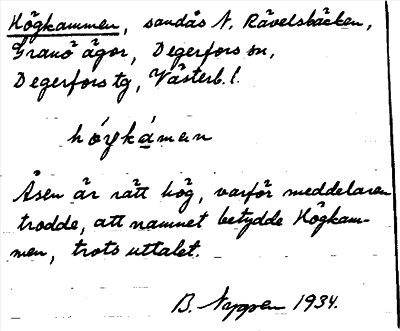 Högkammen, sandås N. Rävelsbäcken,
Granö ägor, Degerfors sn,
Degerfors tg, Västerb. l.
hö́gkámen
Åsen är rätt hög, varför meddelaren
trodde, att namnet betydde Högkam-
men, trots uttalet.
B. 1934.